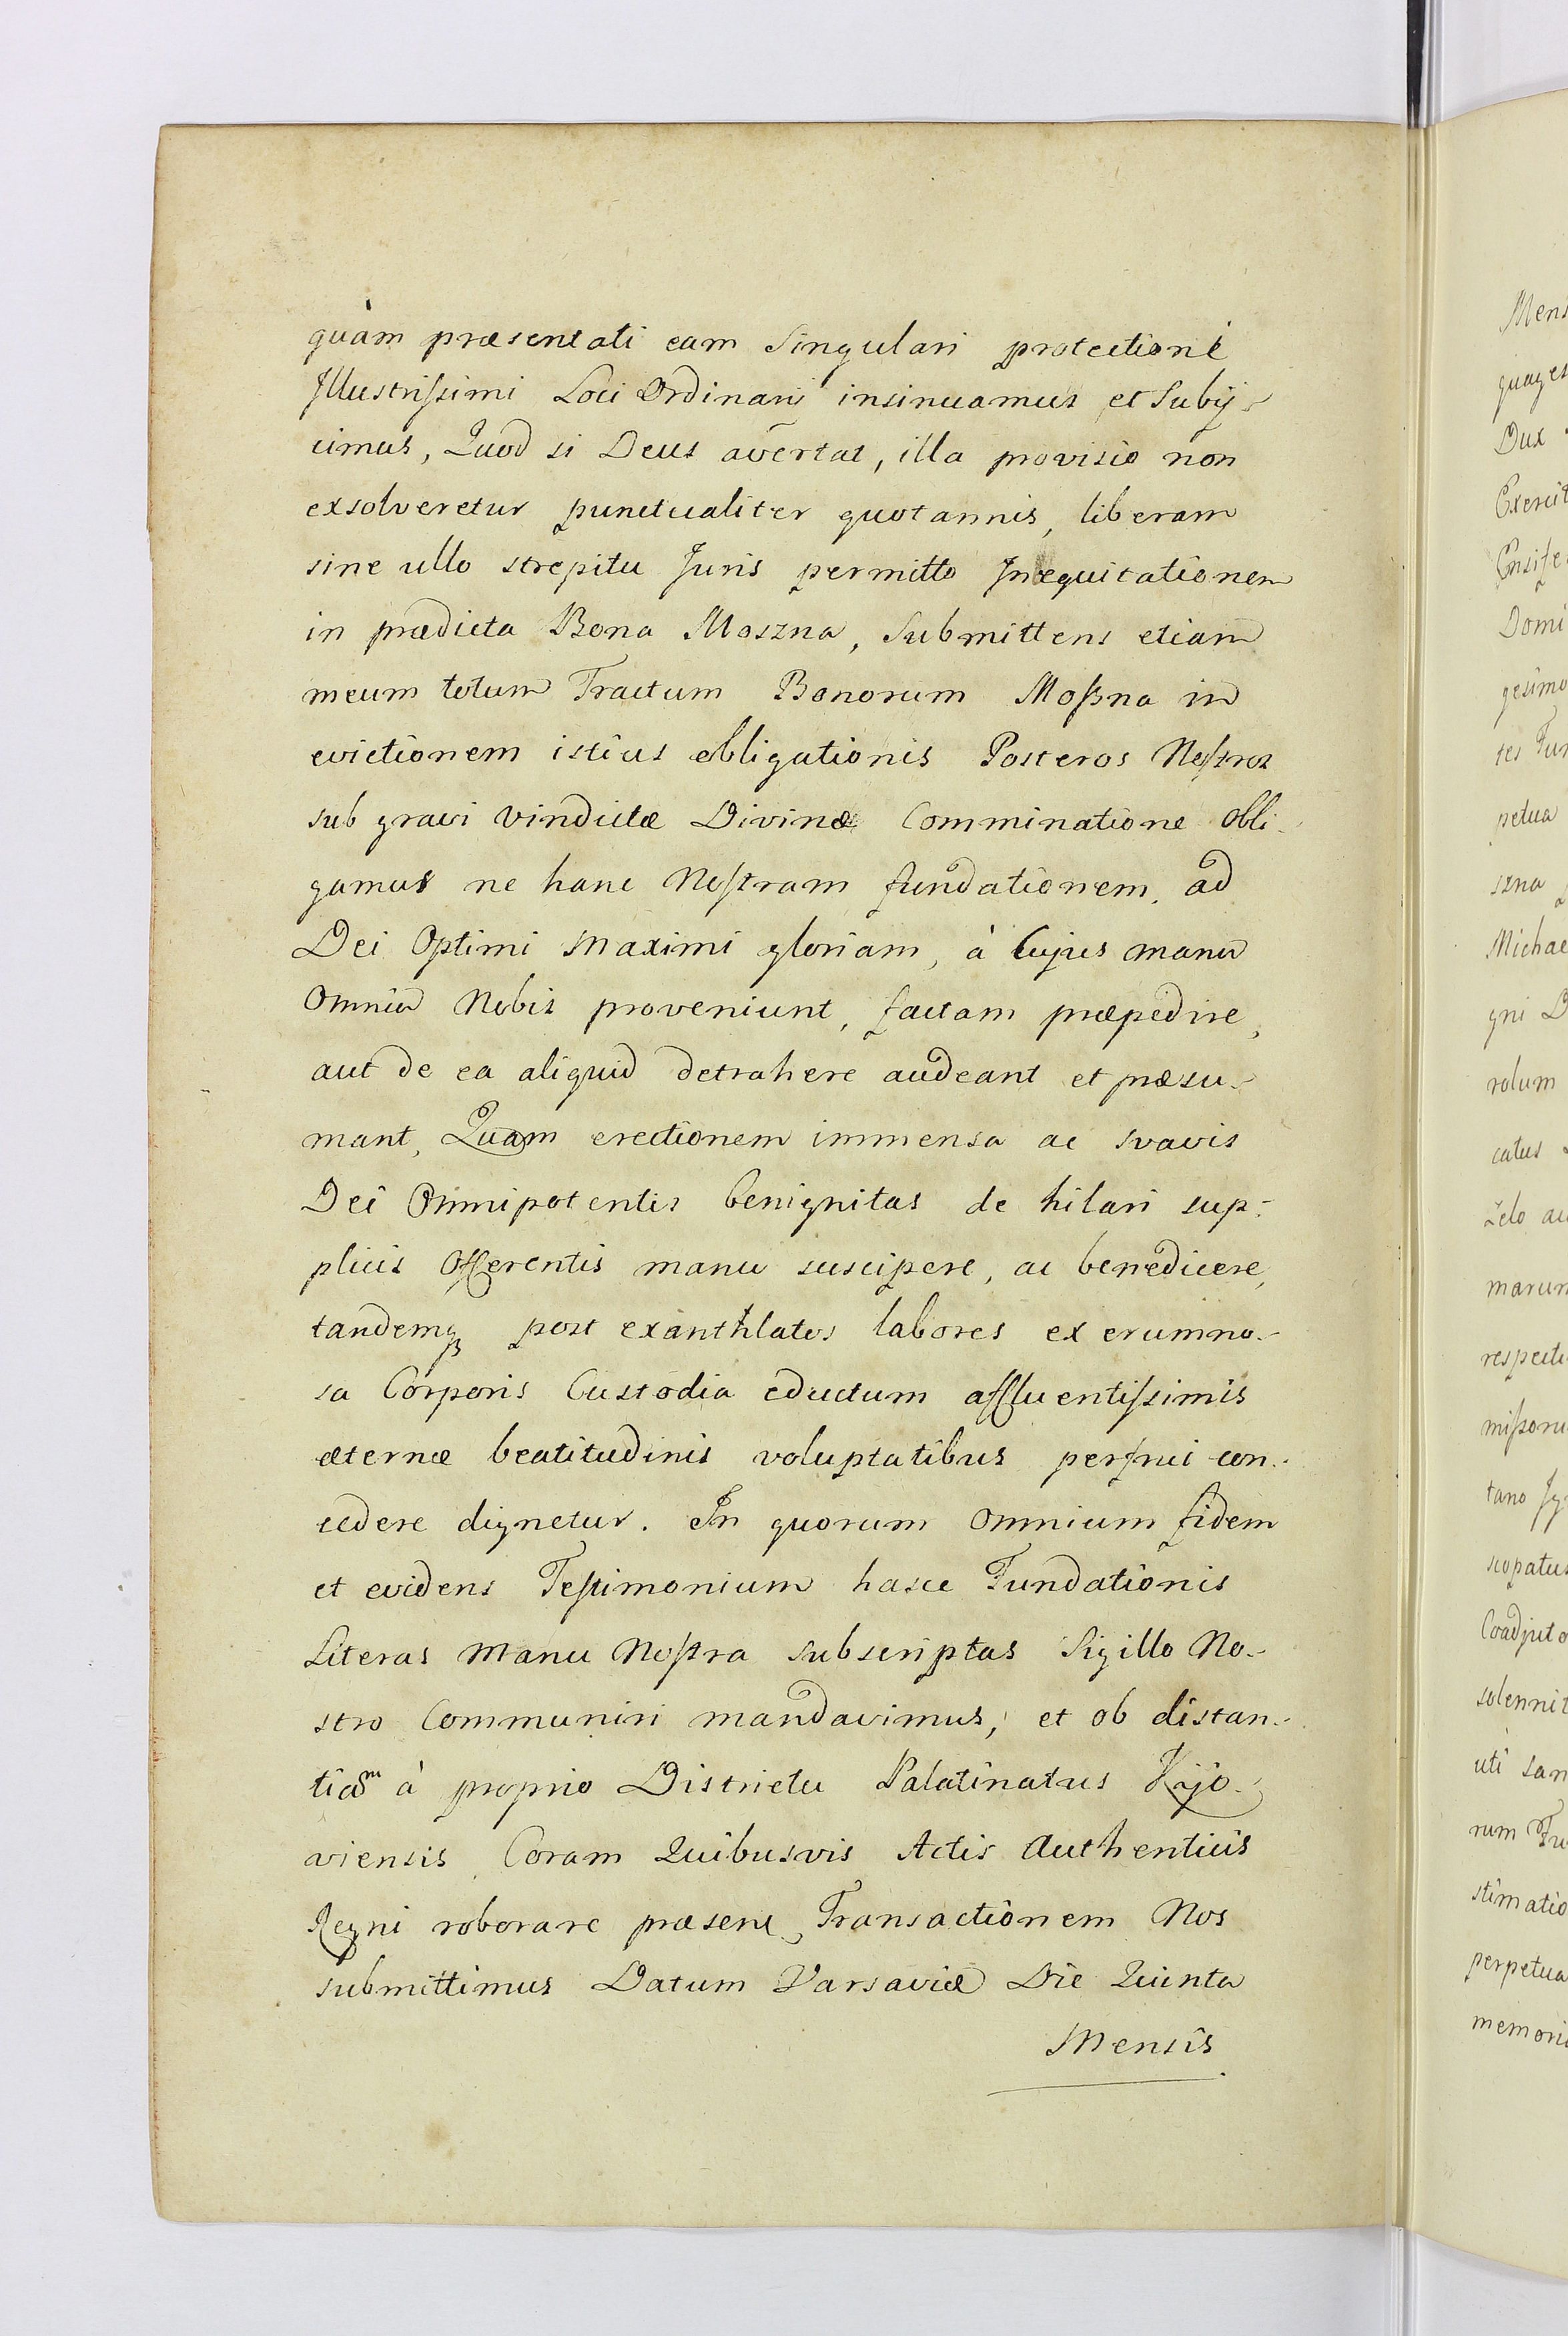 quàm præsentati eam Singulari protectioné
Illustrissimi Loci Ordinarij insinuamus et Subij-
cimus, Quod si Deus avertat, illa provisio non
exsolveretur punctualiter quotannis, liberam
sine ullo strepitu Juris permitto Inæquitationem
in prædicta Bona Moszna, Submittens etiam
meum totum Tractum Bonorum Moszna in
evictionem istius obligationis Posteros Nostros
sub gravi vindictæ Divinæ Comminatione obli-
gamus ne hanc Nostram fundationem, ad
Dei Optimi Maximi gloriam, à Cujus manu
Omnia Nobis proveniunt, factam præpedire,
aut de ea aliquid detrahere audeant et præsu-
mant, Quam erectionem immensa ac svavis
Dei Omnipotentis benignitas de hilari sup-
plicis Offerentis manu suscipere, ac benedicere,
tandemq post exanthlatos labores ex erumno-
sa Corporis Custodia eductum affluentissimis
æternæ beatitudinis voluptatibus perfrui con-
cedere dignetur. In quorum Omnium fidem
et evidens Testimonium hasce Fundationis
Literas Manu Nostra subscriptas Sigillo No-
stro Communiri mandavimus, et ob distan-
tiam à proprio Districtu Palatinatus Kijo-
viensis Coram Quibusvis Actis Authenticis
Regni roborare præsent Transactionem Nos
submittimus Datum Varsaviæ Die Quinta
Mensis
Mens
Dux
Domi
gesimo
petua
szna
Michae
gni D
rolum
catus
Zelo au
marum
respectu
tano
scopatus
Coadjuto
solennit
uti san
rum Fu
stimatio
perpetua
memori